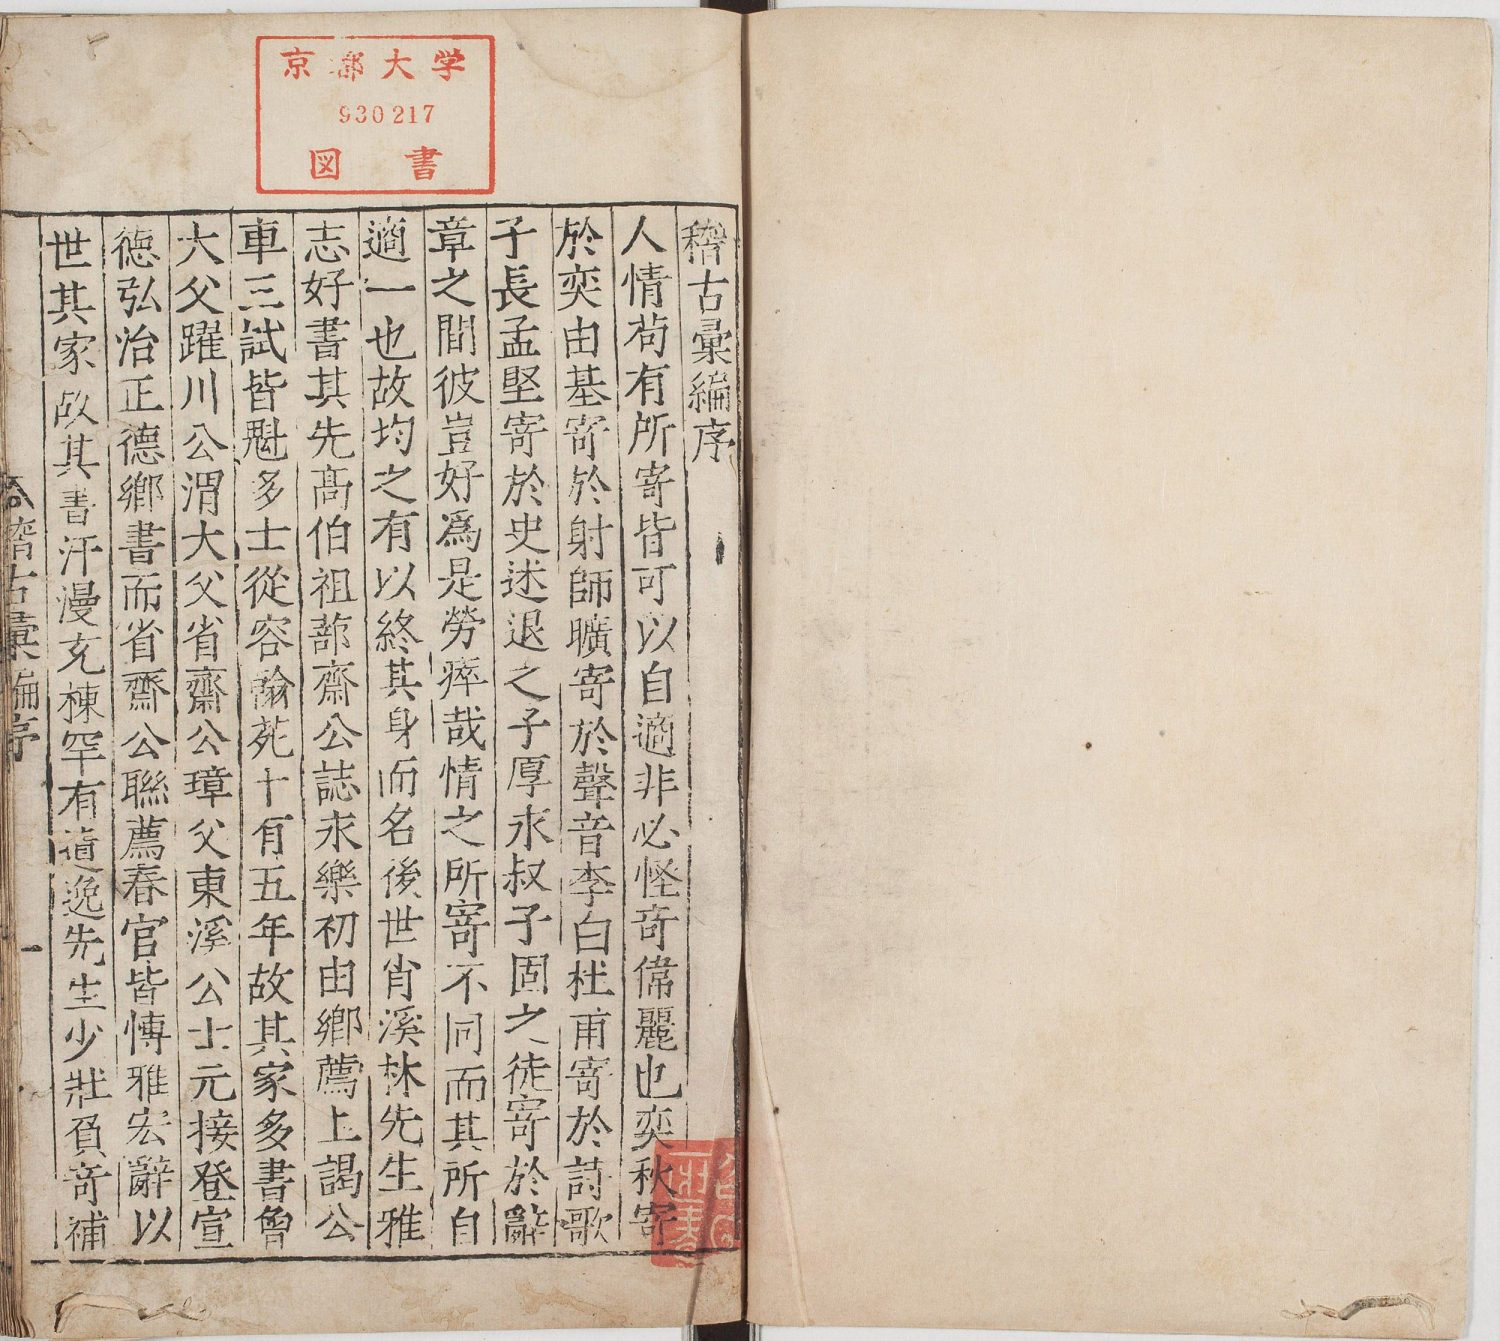 京都大学
930217
図書
稽古彙編序
人情茍有所寄皆可以自適非必怪奇偉麗也奕秋寄
於奕由基寄於射師曠寄於聲音李白杜甫寄於詩歌
子長孟堅寄於史述退之子厚永叔子固之徒寄於辭
章之間彼豈好爲是勞瘁哉情之所寄不同而其所自
適一也故均之有以終其身而名後世肖溪林先生雅
志好書其先高伯祖蔀齋公誌永樂初由鄉薦上謁公
車三試皆魁多士從容翰苑十有五年故其家多書曾
大父躍川公渭大父省齋公璋父東溪公士元接登宣
德弘治正德鄉書而省齋公聯薦春官皆慱雅宏辭以
世其家故其書汗漫充棟罕有遺逸先生少壯負奇補
稽古彙編序
一